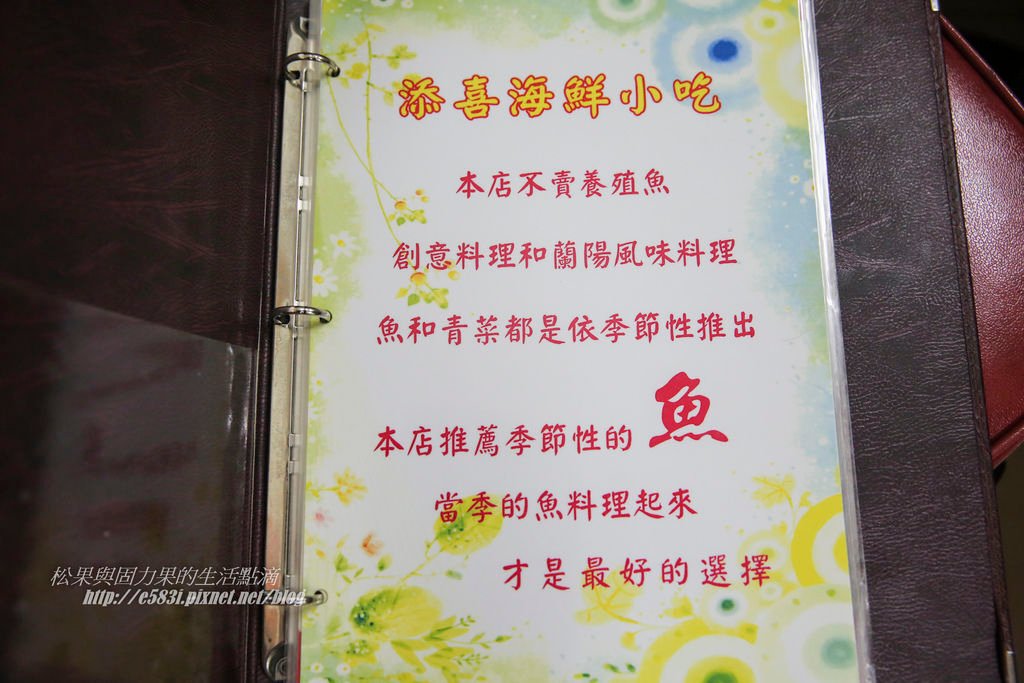 添喜海鮮小吃
本店不賣養殖魚
創意料理和蘭陽風味料理
魚和青菜都是依季節性推出
本店推薦季節性的 魚
當季的魚料理起來
才是最好的選擇
松果與固力果的生活點滴
http://c583i.pixnet.net/blog